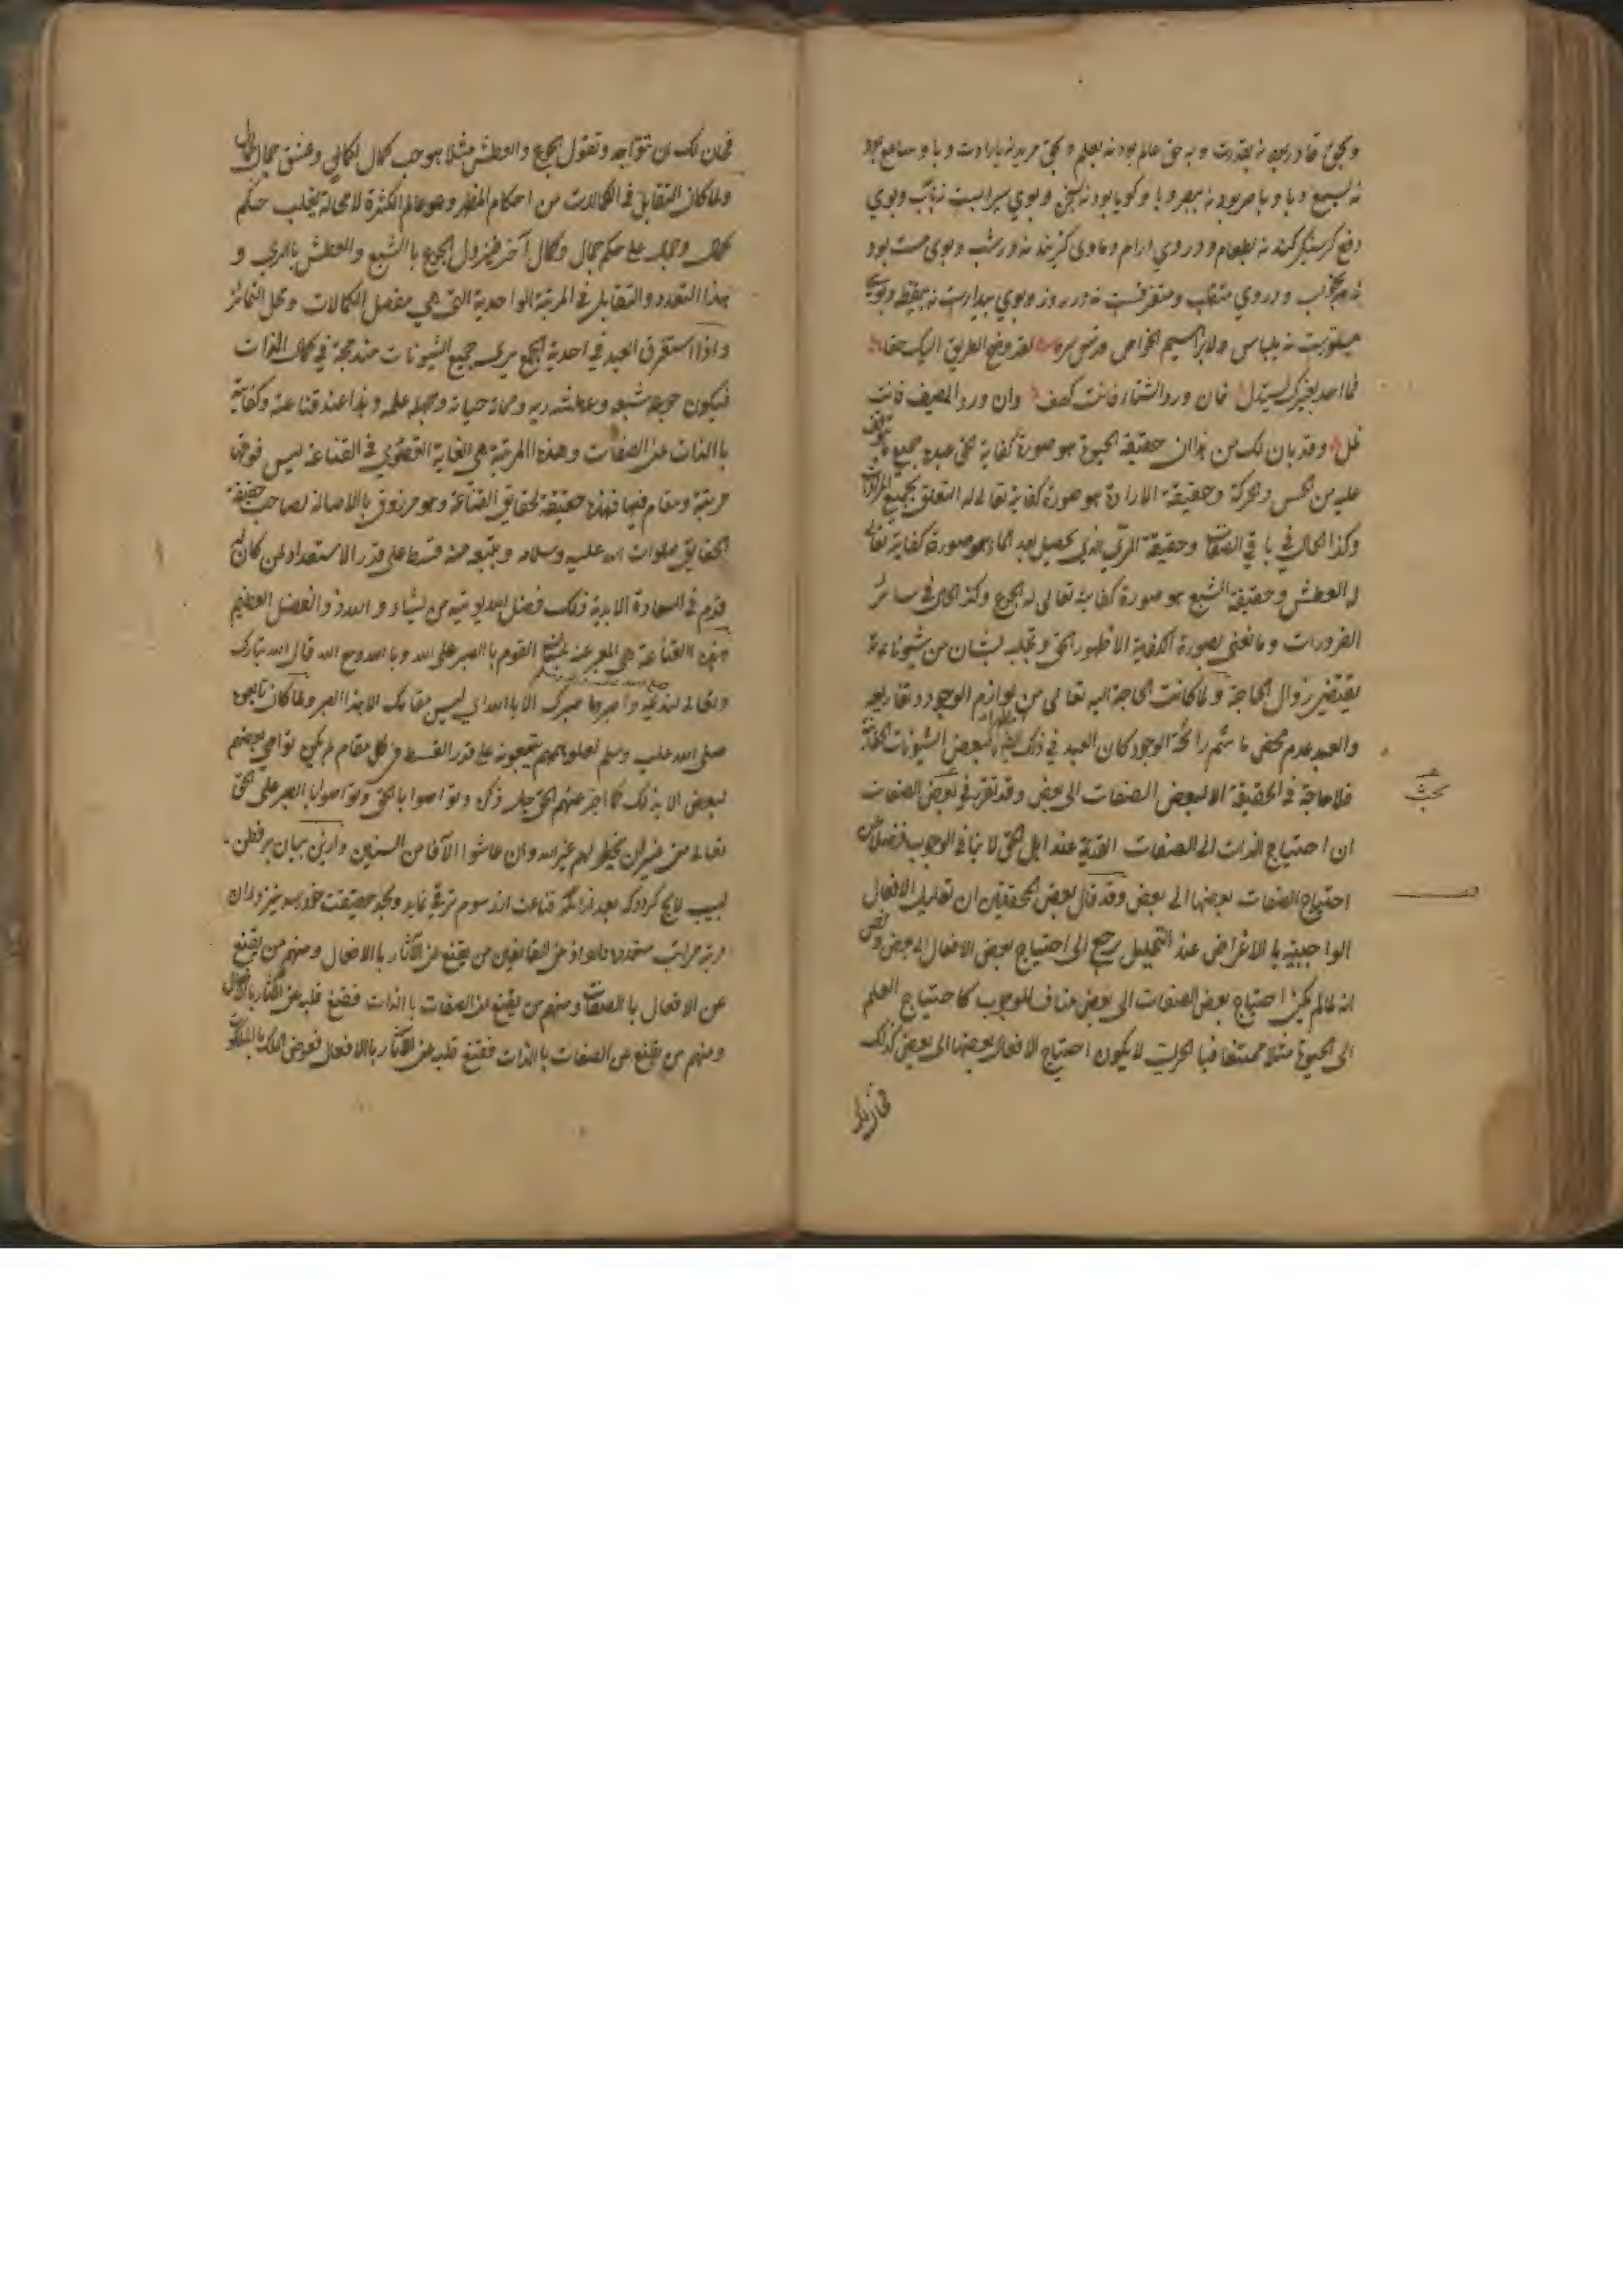 و بحق قادر بود نه بقدرت و به حق عالم بود نه بعلم و بحق مرید نه بارادت و با و سامع بود
نه بسمع و با و باصر بود نه ببصر و با و گویا بود نه بسخن و بوی سیرابست نه بآب و بوی
دفع کرسنگی کند نه بطعام و در وی ارام و ماوی کزیند نه در شب و بوی مست بود
نه بخواب و در وی متقلب و متصرفست نه در روز و بوی بیدارست نه بیقظه و بوی
مستورست نه بلباس ولابراهیم الخواص قدس سره لقد وضح الطریق الیک حقا
فما احد بغیرک یستدل فان ورد الشتاء فانت کهف وان ورد المصیف فانت
ظل وقد بان لک من هذا ان حقیقة الحیوة هو صورة کفایة الحق عبده جمیع ما یتوقف
علیه من الحس والحرکة وحقیقة الارادة هو صورة کفایته تعالی له التعلق بجمیع المرادات
وکذا الحال فی باقی الصفات وحقیقة الری الذی یحصل بعد الماء هو صورة کفایته تعالی
له العطش وحقیقة الشبع هو صورة کفایته تعالی له الجوع وکذا الحال فی سائر
الضرورات وما نعنی بصورة الکفایة الا ظهور الحق وتجلیه بشان من شیوناته
یقتضی زوال الحاجة ولما کانت الحاجة الیه تعالی من لوازم الوجود وتفاریعه
والعبد عدم محض ما شم رائحة الوجود کان العبد فی ذلک مظهرا لبعض الشیونات الحقانیة
فلا حاجة فی الحقیقة الا لبعض الصفات الی بعض وقد تقرر فی بعض الصفات
بحث
ان احتیاج الذات الی الصفات القدیمة عند اهل الحق لا ینافی الوجوب فضلا عن
احتیاج الصفات بعضها الی بعض وقد قال بعض المحققین ان تعلیل الافعال
الواجبیة بالاغراض عند التحلیل یرجع الی احتیاج بعض الافعال الی بعض
انه لما لم یکن احتیاج بعض الصفات الی بعض مناف للوجوب کاحتیاج العلم
الی الحیوة مثلا ممتنعا فبالحری لا یکون احتیاج الافعال بعضها الی بعض کذلک
فحان لک
فحان لک ان تتواجد وتقول الجوع والعطش مثلا هو حب کمال لکمالی وعشق جمال لجمالی
ولما کان التقابل فی الکمالات من احکام المظهر وهو عالم الکثرة لا محالة یغلب حکم
کمال وجمال علی حکم جمال وکمال آخر فیزول الجوع بالشبع والعطش بالری و
هذا التعدد والتقابل فی المرتبة الواحدیة التی هی مفصل الکمالات ومحل التمائز
واذا استغرق العبد فی احدیة الجمع یری جمیع الشیونات مندمجة فی کمال الذات
فیکون جوعه شبعه وعطشه ریه ومماته حیاته وجهله علمه وهذا عند قناعته وکفایته
بالذات عن الصفات وهذه المرتبة هی الغایة القصوی فی القناعة لیس فوقها
مرتبة ومقام فیها فهذه حقیقة لحقایق القناعة وهو مرزوق بالاصالة لصاحب حقیقة
الحقایق صلوات الله علیه وسلامه ولتبعه منه قسط علی قدر الاستعداد لمن کان له
قدم فی السعادة الابدیة ذلک فضل الله یؤتیه من یشاء والله ذو الفضل العظیم
وهذه القناعة هی المعبر عنه بلسان القوم بالصبر علی الله وبالله ومع الله قال الله تبارک
وتعالی لنبیه واصبر وما صبرک الا بالله ای لیس مقامک الا هذا الصبر ولما کان تابعوه
صلی الله علیه وسلم یتبعونه علی قدر القسط فی کل مقام لم یکن تواصی بعضهم
لبعض الا بذلک کما اخبر عنهم الحق جل ذکره وتواصوا بالحق وتواصوا بالصبر علی الحق
تعالی من غیر ان یخطر لهم غیر الله وان عاشوا الآفا من السنین وازین بیان بر فطن
لبیب لایح کردد که بعد از آنکه قناعت از رسوم ترقی نماید وبحد حقیقت خود رسد نیز در ان
مرتبه مراتب متعدده دارد اذ من القانعین من یقنع عن الآثار بالافعال ومنهم من یقنع
عن الافعال بالصفات ومنهم من یقنع عن الصفات بالذات فقنع قلبه عن الآثار بالافعال
ومنهم من یقنع عن الصفات بالذات فقنع قلبه عن الآثار بالافعال فعوض الملک بالملکوت